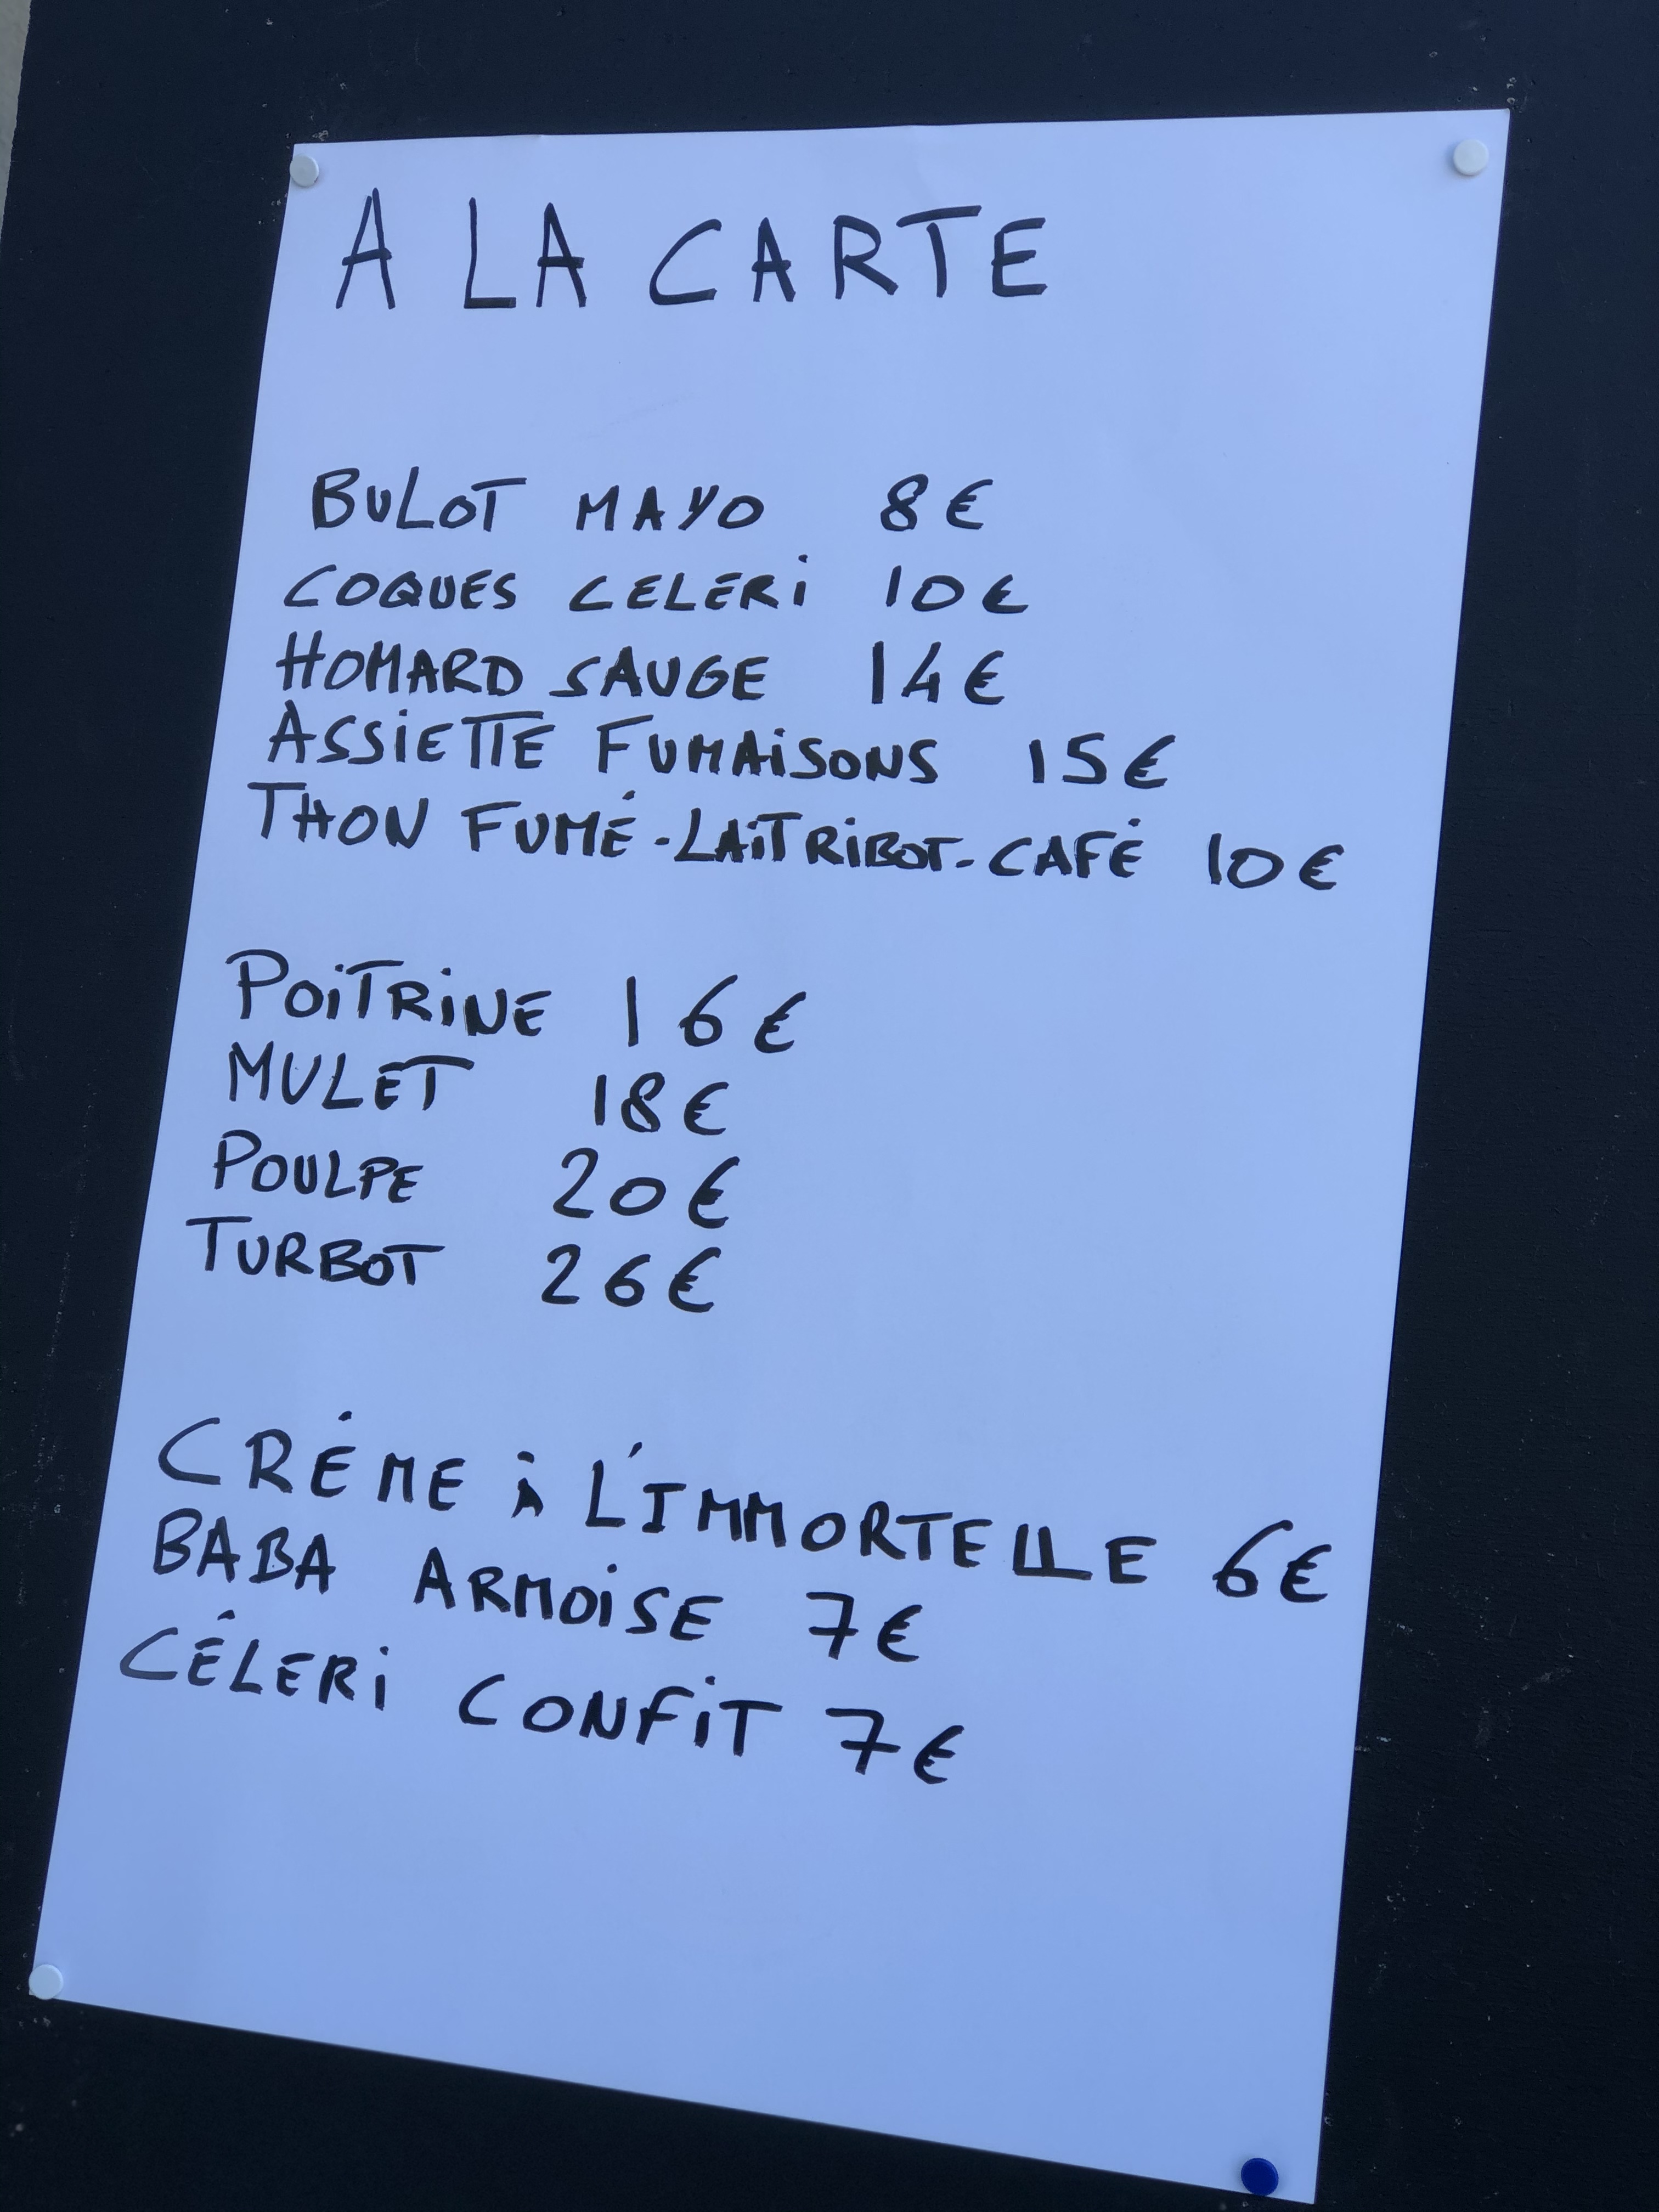 A LA CARTE
BULOT MAYO 8€
COQUES CELERI 10€
HOMARD SAUGE 14€
ASSIETTE FUMAISONS 15€
THON FUMÉ-LAIT RIBOT-CAFÉ 10€
POITRINE 16€
MULET 18€
POULPE 20€
TURBOT 26€
CRÉME À L'IMMORTELLE 6€
BABA ARMOISE 7€
CÉLERI CONFIT 7€